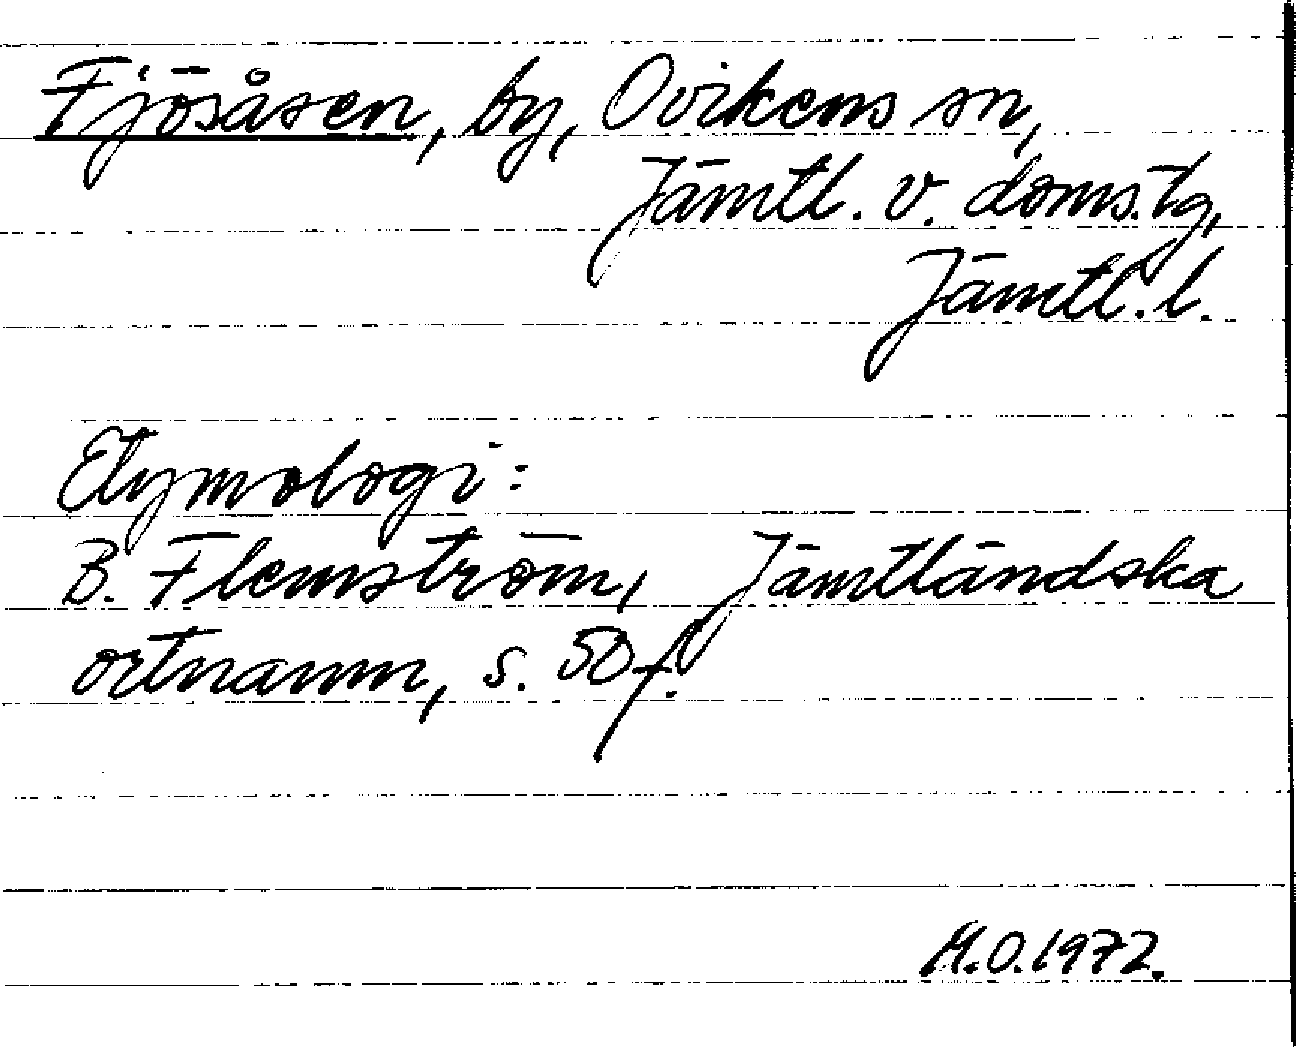 Fjösåsen, by, Ovikens sn,
Jämtl. v. doms.tg,
Jämtl. l.
Etymologi:
B. Flemström, Jämtländska
ortnamn, s. 50 f.
M.O. 1972.